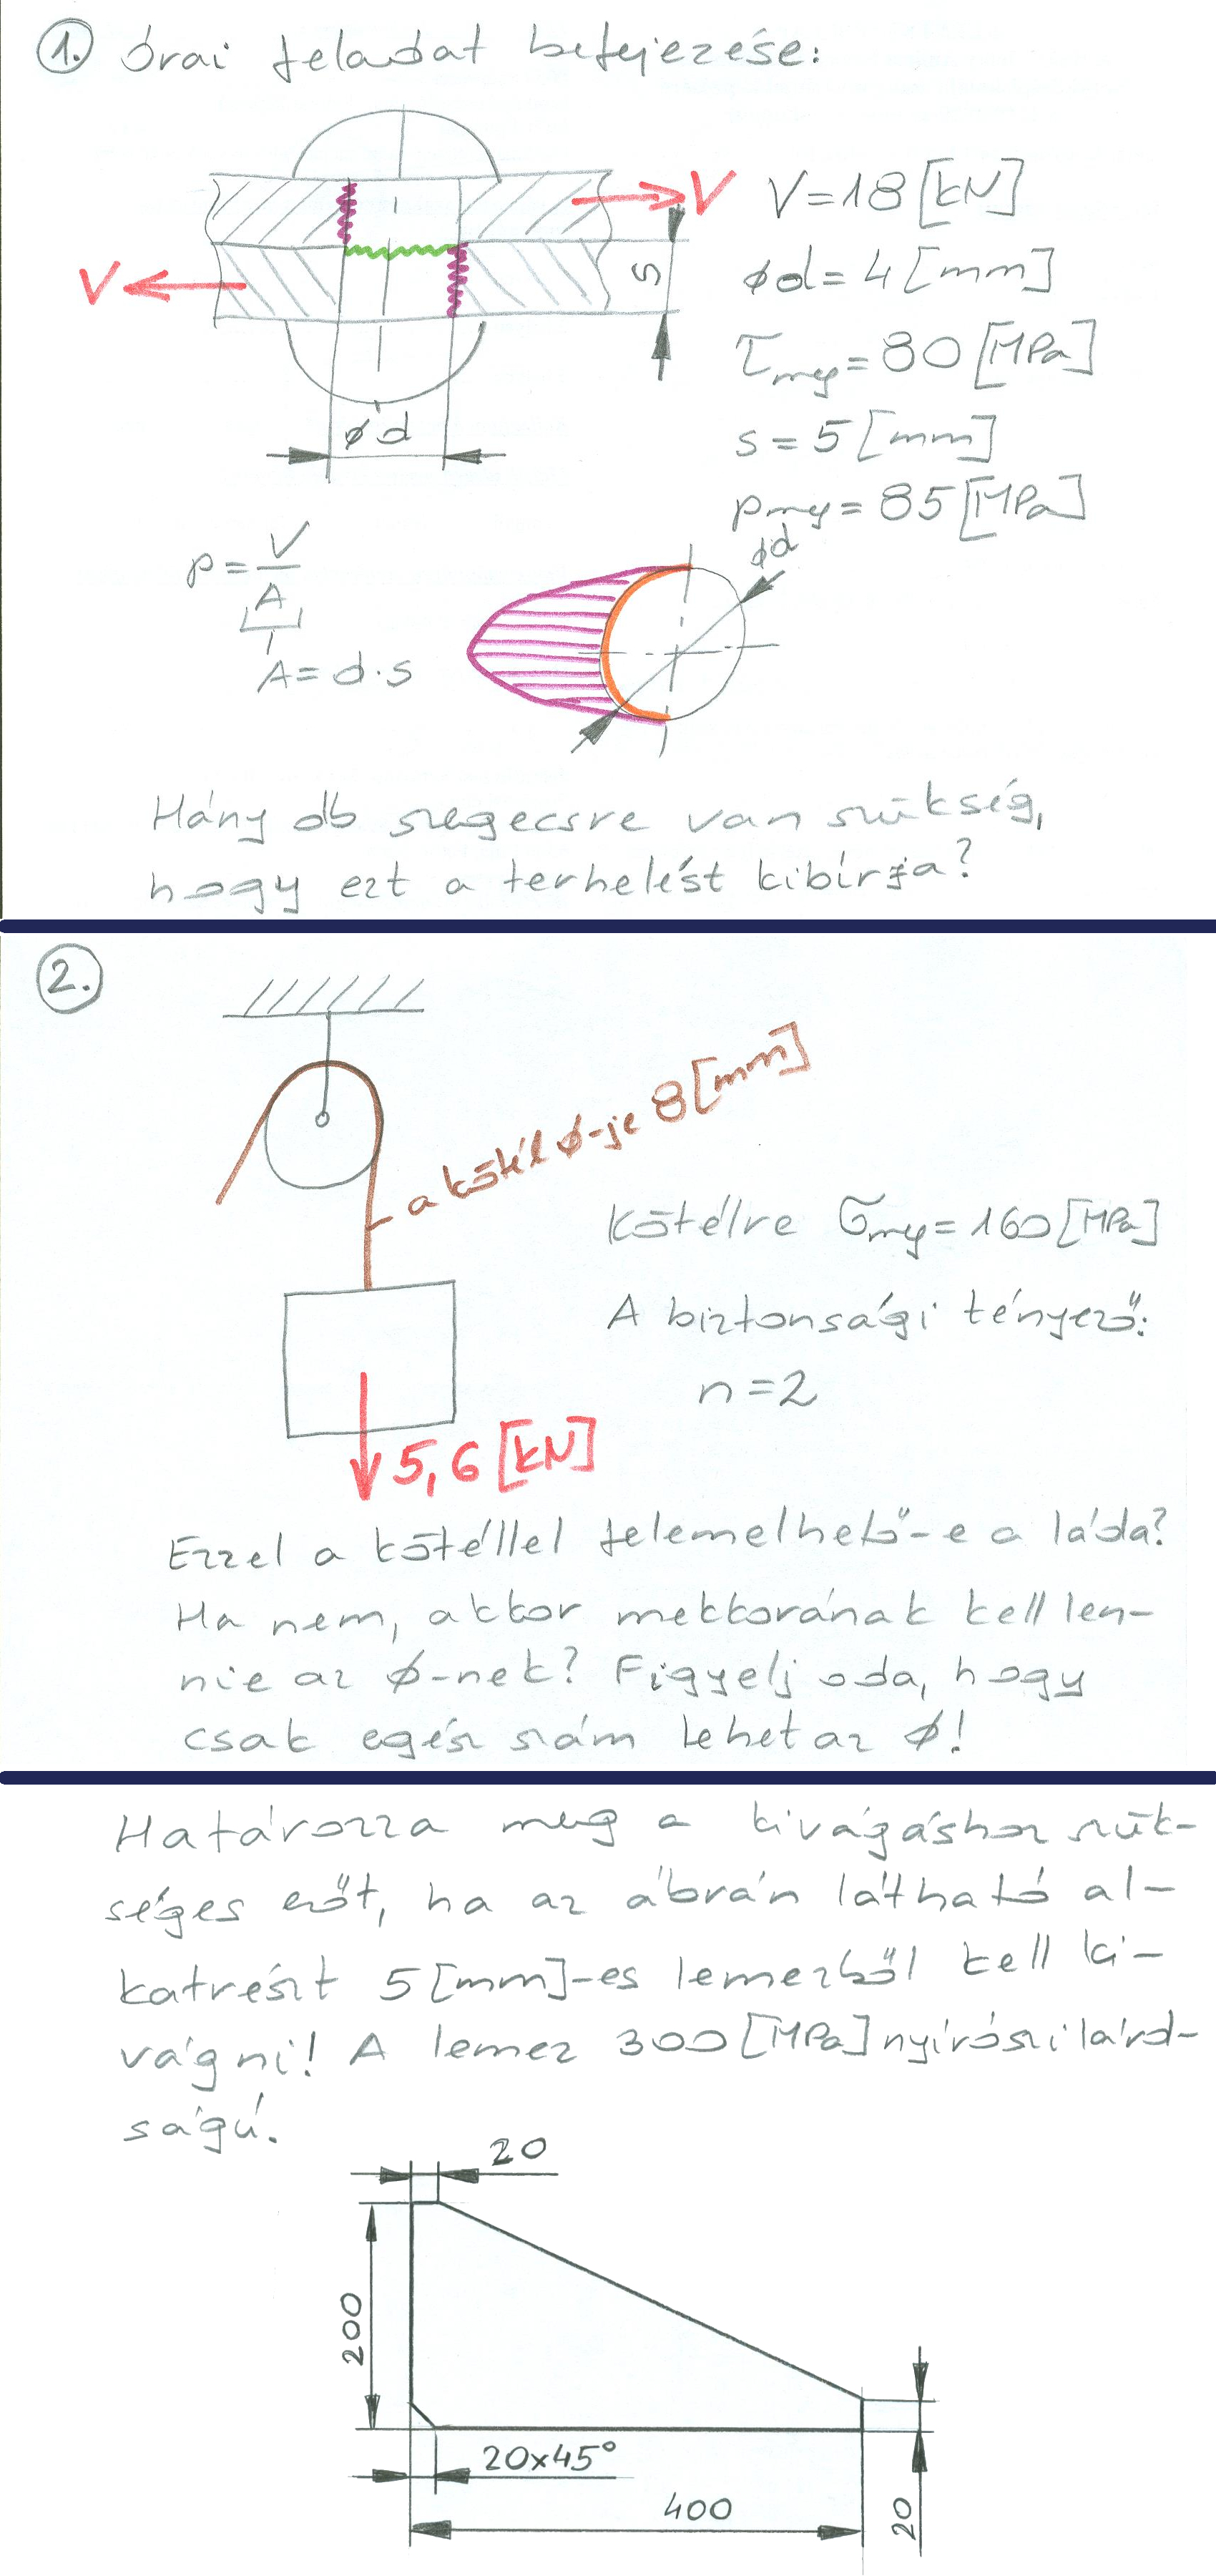 1. Órai feladat befejezése:
V
V
V=18 [kN]
s
ød=4 [mm]
τmeg=80 [MPa]
s=5 [mm]
pmeg=85 [MPa]
ød
p=V/A
ød
A=d·s
Hány db szegecsre van szükség,
hogy ezt a terhelést kibírja?
2.
a kötél ø-je 8 [mm]
Kötélre σmeg=160 [MPa]
A biztonsági tényező:
n=2
5,6 [kN]
Ezzel a kötéllel felemelhető-e a láda?
Ha nem, akkor mekkorának kell len-
nie az ø-nek? Figyelj oda, hogy
csak egész szám lehet az ø!
Határozza meg a kivágáshoz szük-
séges erőt, ha az ábrán látható al-
katrészt 5 [mm]-es lemezből kell ki-
vágni! A lemez 300 [MPa] nyírószilárd-
ságú.
20
200
20x45°
400
20